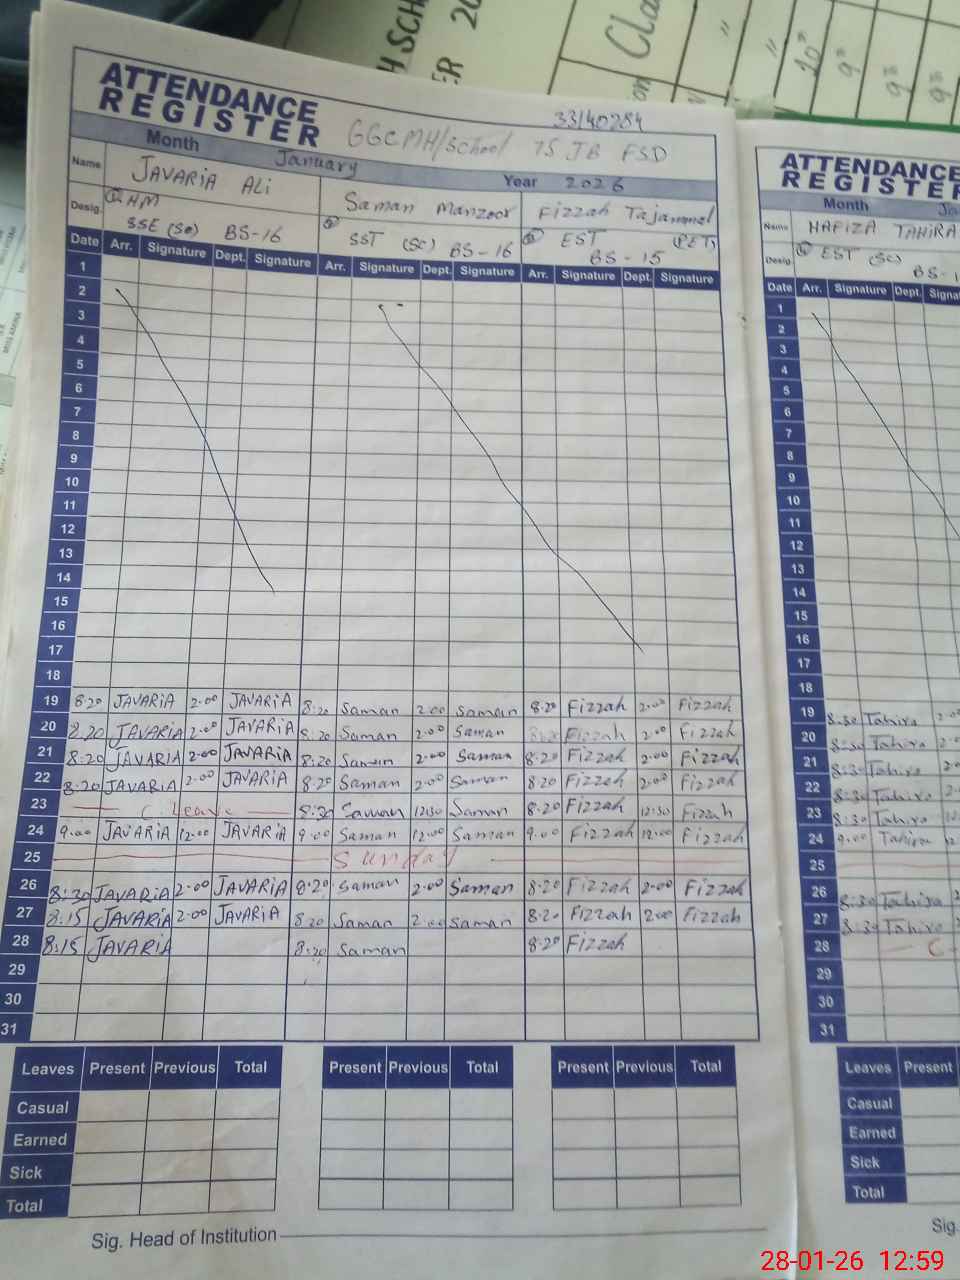 ATTENDANCE
REGISTER
GGCMH/School 75 JB FSD
33140284
Month January Year 2026
Name JAVARIA ALi Saman Manzoor Fizzah Tajammal
Desig. HM SSE (Sc) BS-16 SST (Sc) BS-16 EST (PET) BS-15
Date Arr. Signature Dept. Signature Arr. Signature Dept. Signature Arr. Signature Dept. Signature
1
2
3
4
5
6
7
8
9
10
11
12
13
14
15
16
17
18
19 8:20 JAVARIA 2:00 JAVARIA 8:20 Saman 2:00 Saman 8:20 Fizzah 2:00 Fizzah
20 8:20 JAVARIA 2:00 JAVARIA 8:20 Saman 2:00 Saman 8:20 Fizzah 2:00 Fizzah
21 8:20 JAVARIA 2:00 JAVARIA 8:20 Saman 2:00 Saman 8:20 Fizzah 2:00 Fizzah
22 8:20 JAVARIA 2:00 JAVARIA 8:20 Saman 2:00 Saman 8:20 Fizzah 2:00 Fizzah
23 C. Leave 8:20 Saman 12:30 Saman 8:20 Fizzah 12:30 Fizzah
24 9:00 JAVARIA 12:00 JAVARIA 9:00 Saman 12:00 Saman 9:00 Fizzah 12:00 Fizzah
25 Sunday
26 8:30 JAVARIA 2:00 JAVARIA 8:20 Saman 2:00 Saman 8:20 Fizzah 2:00 Fizzah
27 8:15 JAVARIA 2:00 JAVARIA 8:20 Saman 2:00 Saman 8:20 Fizzah 2:00 Fizzah
28 8:15 JAVARIA 8:20 Saman 8:20 Fizzah
29
30
31
Leaves Present Previous Total Present Previous Total Present Previous Total
Casual
Earned
Sick
Total
Sig. Head of Institution
ATTENDANCE
REGISTER
Month
Name HAFIZA TAHIRA
Desig. EST (Sc)
Date Arr. Signature Dept.
1
2
3
4
5
6
7
8
9
10
11
12
13
14
15
16
17
18
19 8:30 Tahira
20 8:30 Tahira
21 8:30 Tahira
22 8:30 Tahira
23 8:30 Tahira
24 9:00 Tahira
25
26 8:30 Tahira
27 8:30 Tahira
28 C
29
30
31
Leaves Present
Casual
Earned
Sick
Total
Sig.
28-01-26 12:59